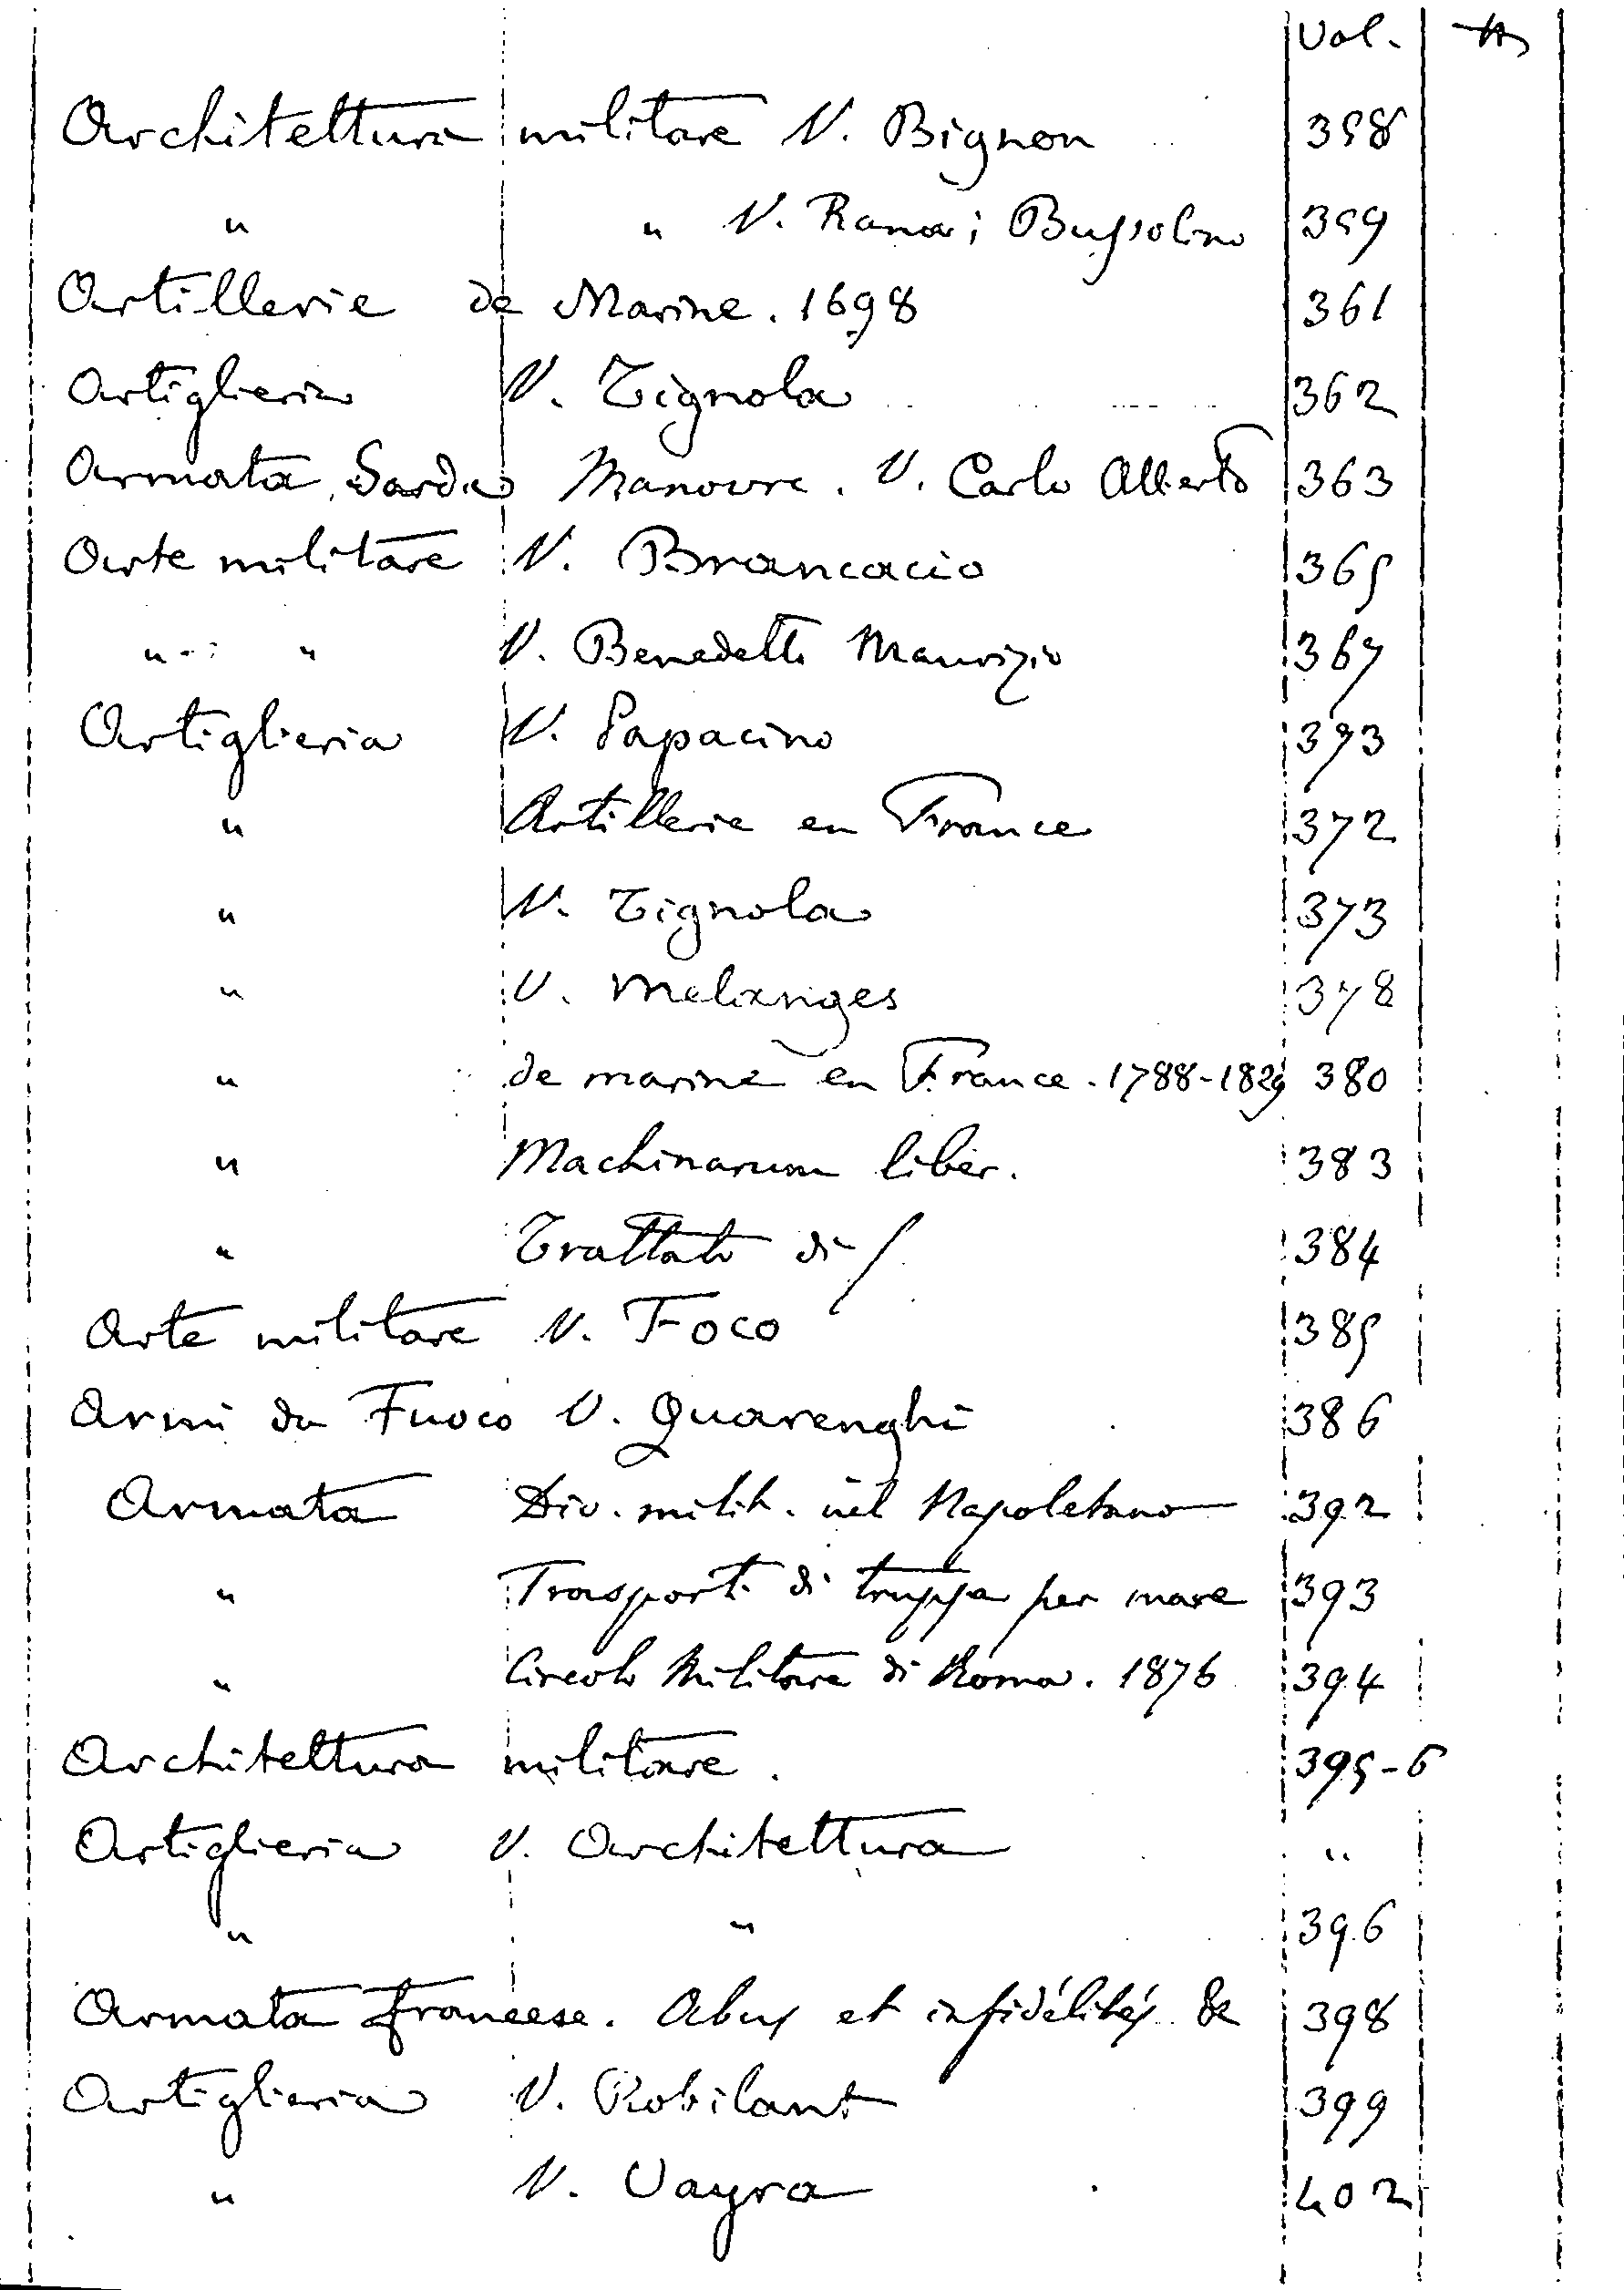 Vol.
Architettura militare V. Bignon 358
" " V. Rana; Bussolino 359
Artillerie de Marine. 1698 361
Artiglieria V. Tignola 362
Armata Sarda Manovre. V. Carlo Alberto 363
Arte militare V. Brancacio 365
" " V. Benedetti Maurizio 367
Artiglieria V. Papacino 373
" Artillerie en France 372
" V. Tignola 373
" V. Melanges 378
" de marine en France. 1788-1829 380
" Machinarum liber. 383
" Trattato di 384
Arte militare V. Foco 385
Armi da Fuoco V. Quarenghi 386
Armata Div. milit. nel Napoletano 392
" Trasporti di truppa per mare 393
" Circolo Militare di Roma. 1876 394
Architettura militare. 395-6
Artiglieria V. Architettura "
" " 396
Armata francese. Abus et infidélités & 398
Artiglieria V. Robilant 399
" V. Vayra 402